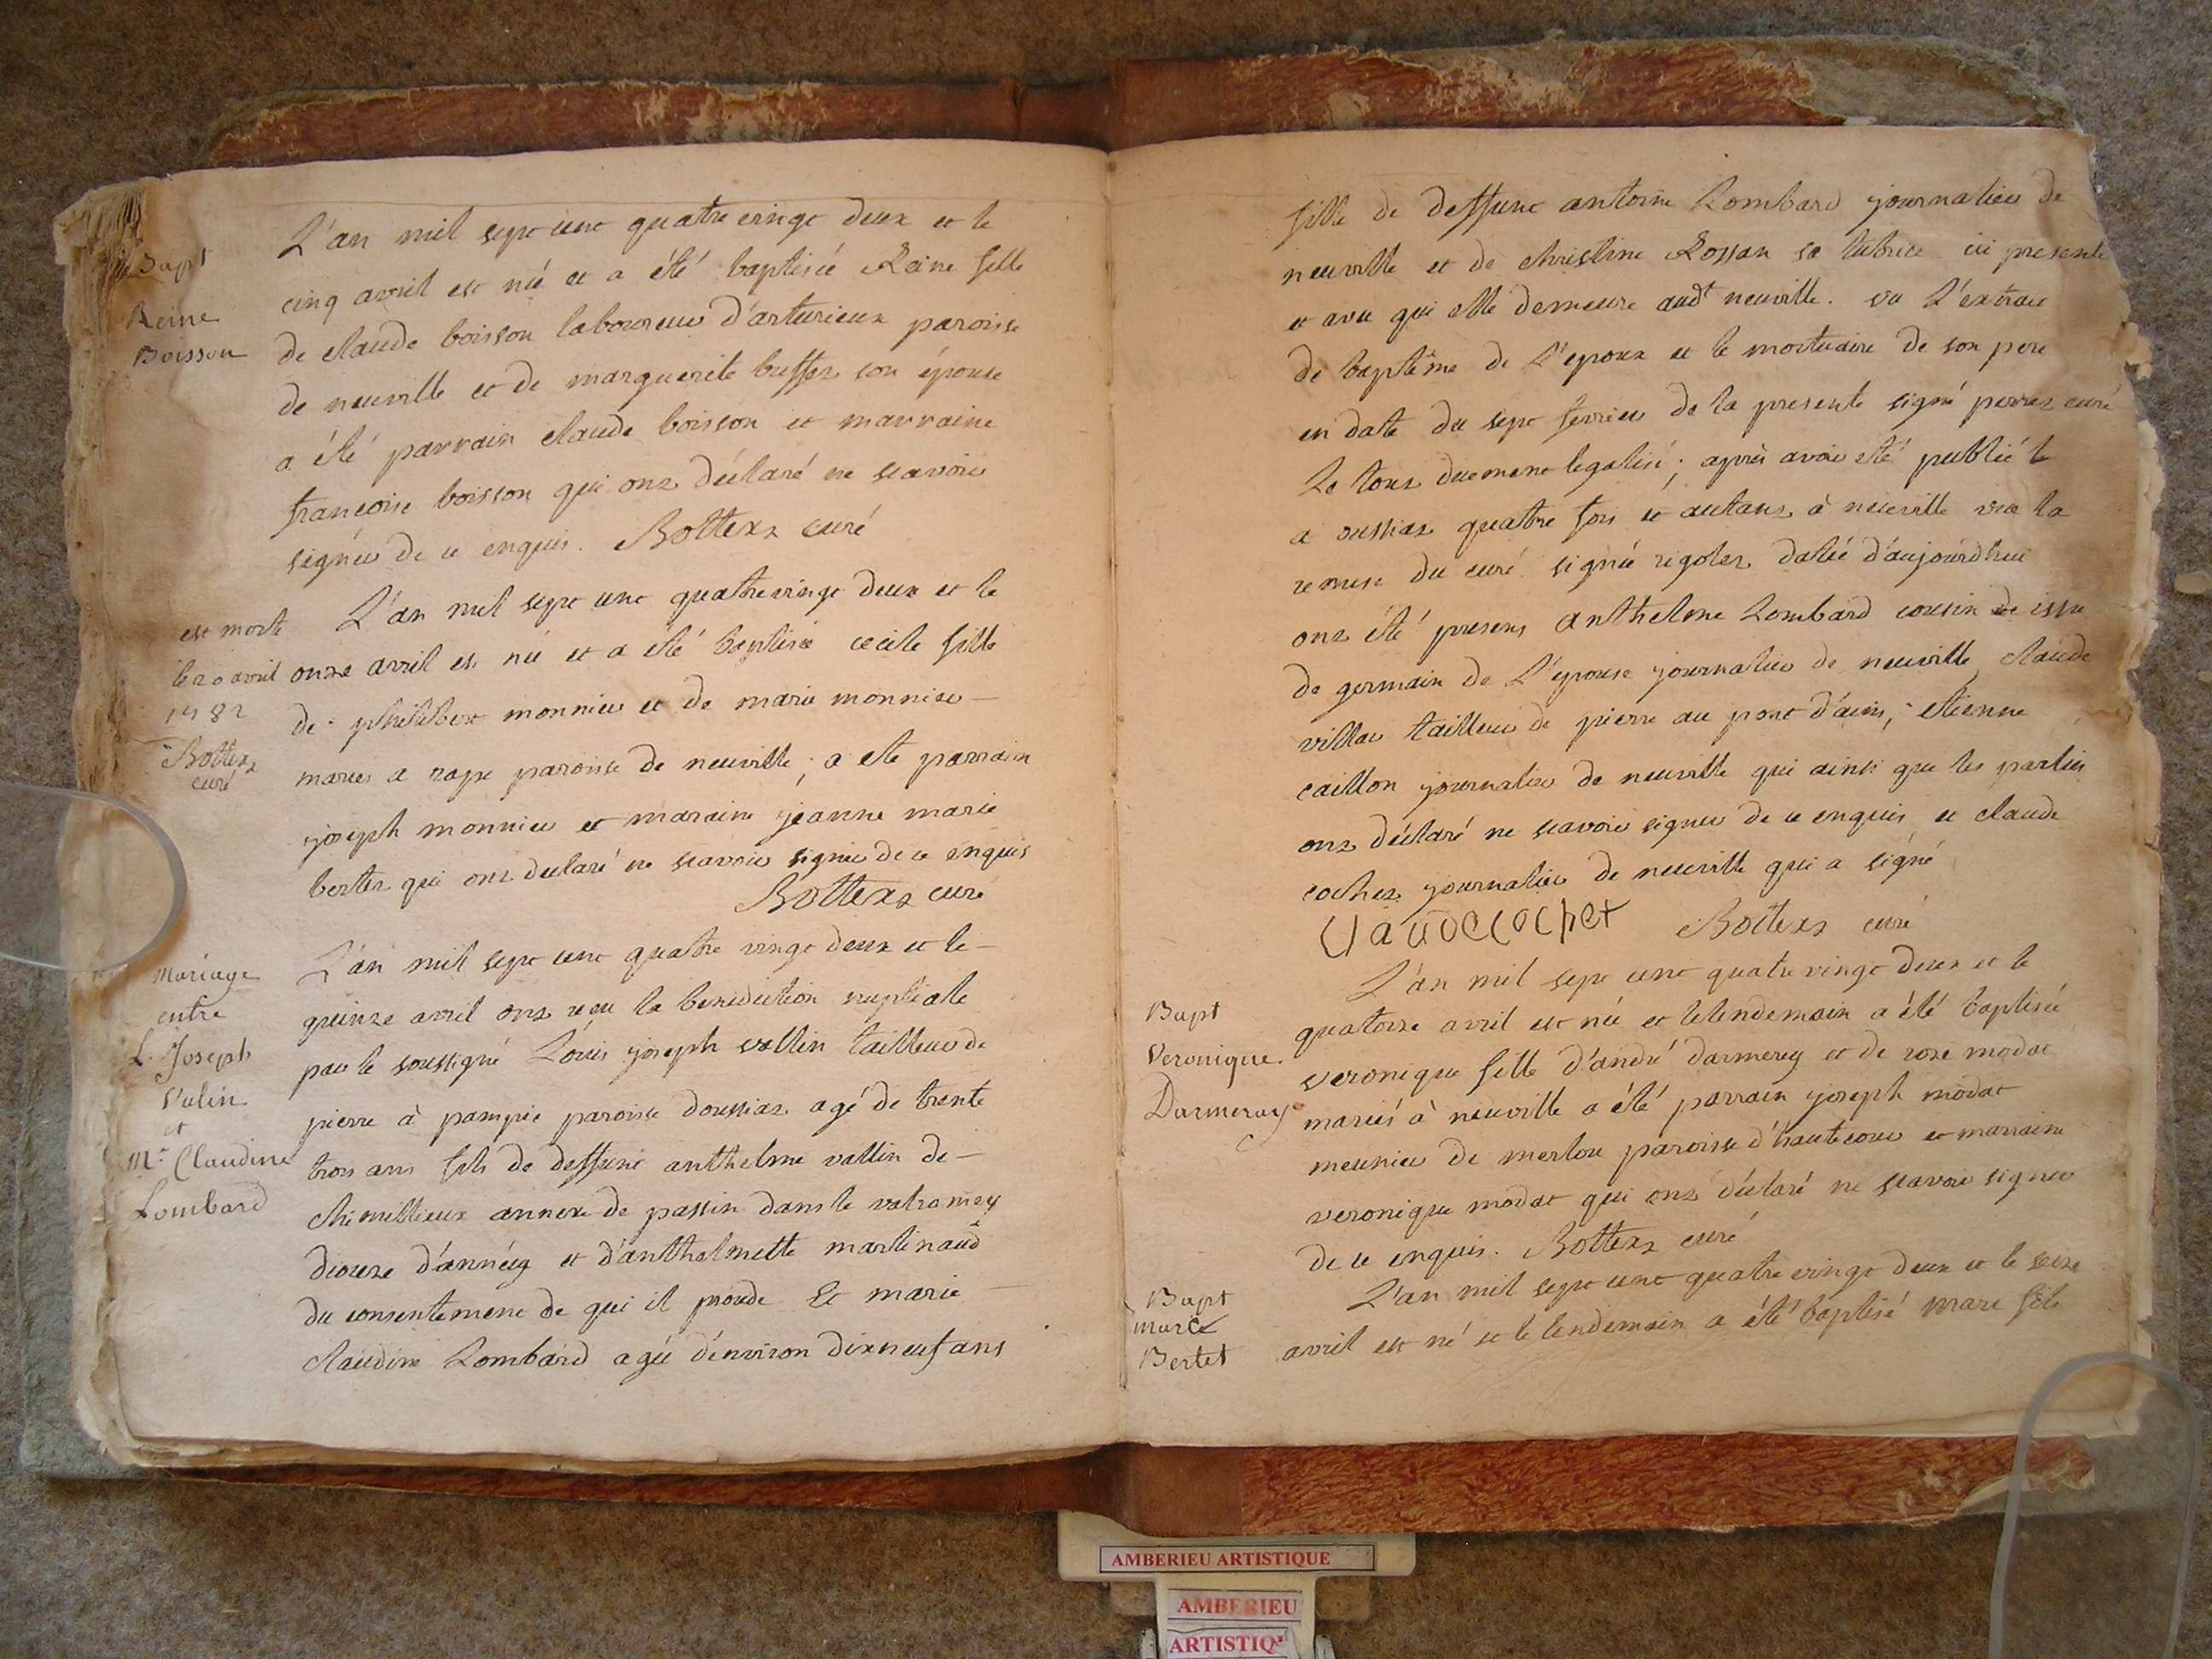 Bapt
Reine
Boisson
L'an mil sept cent quatre vingt deux et le
cinq avril est née et a été baptisée Reine fille
de claude boisson laboureur d'arturieux paroisse
de neuville et de marguerite buffet son épouse
a été parrain claude boisson et marraine
françoise boisson qui ont déclaré ne scavoir
signer de ce enquis. Bottex curé
est morte
le 20 avril
1782
Bottex
curé
L'an mil sept cent quatrevingt deux et le
onze avril est née et a été baptisée cecile fille
de philibert monnier et de marie monnier
mariés a rape paroisse de neuville; a ete parrain
joseph monnier et maraine jeanne marie
bertet qui ont declaré ne scavoir signer de ce enquis
Bottex curé
Mariage
entre
L. Joseph
Valin
et
Mie Claudine
Lombard
L'an mil sept cent quatre vingt deux et le
quinze avril ont reçu la benediction nuptiale
par le soussigné Louis joseph vallin tailleur de
pierre à pampier paroisse doussiat agé de trente
trois ans fils de deffunt anthelme vallin de
chemillieux annexe de passin dans le valromey
dioceze d'annécy et d'anthelmette martinaud
du consentement de qui il procede Et marie
claudine Lombard agée d'environ dixneuf ans
fille de deffunt antoine Lombard journalier de
neuville et de christine Rossan sa tutrice ici presente
et avec qui elle demeure audt neuville. vu L'extrait
de baptême de L'epoux et le mortuaire de son pere
en date du sept fevrier de la presente signé perret curé
Le tout duement legalisé; après avoir été publié le
a oussiat quatre fois et autant à neuville vue la
remise du curé signée rigolet datée d'aujourdhui
ont été presens anthelme Lombard cousin de issu
de germain de L'épouse journalier de neuville, claude
villar tailleur de pierre au pont d'ain, etienne
caillon journalier de neuville qui ainsi que les parties
ont déclaré ne scavoir signer de ce enquis et claude
cochet journalier de neuville qui a signé
claudecochet Bottex curé
Bapt
Veronique
Darmeray
L'an mil sept cent quatre vingt deux et le
quatorze avril est née et lelendemain a été baptisée
veronique fille d'andré darmerey et de roze modat
mariés à neuville a été parrain joseph modat
meunier de merlou paroisse d'hautecour et marraine
veronique modat qui ont déclaré ne scavoir signer
de ce enquis. Bottex curé
Bapt
Marc
Bertet
L'an mil sept cent quatre vingt deux et le seize
avril est né et le lendemain a été baptisé marc fils
AMBERIEU ARTISTIQUE
AMBERIEU
ARTISTIQ